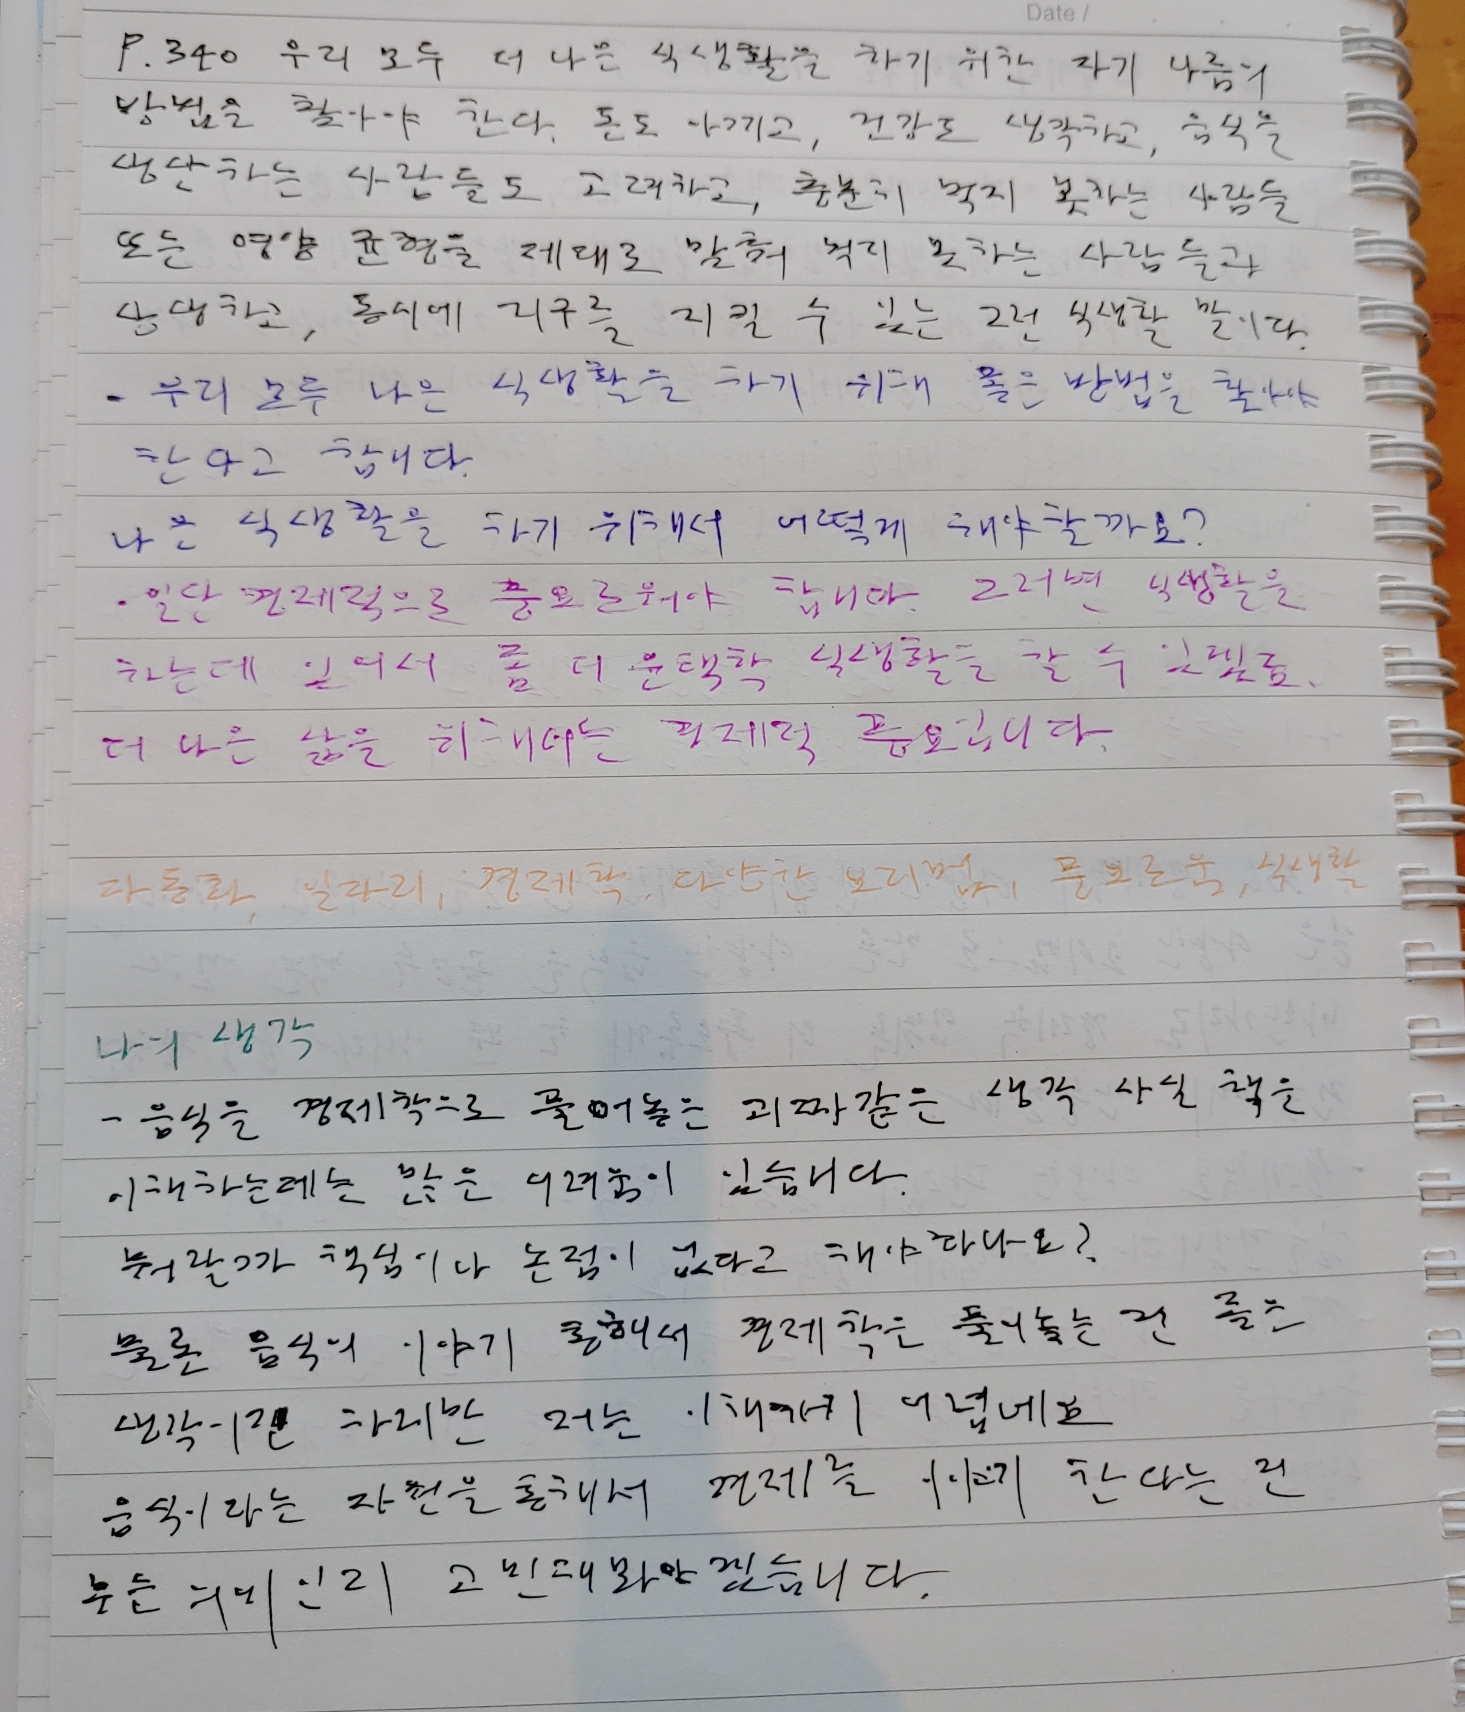 Date /
P.340 우리 모두 더 나은 식생활을 하기 위한 자기 나름의
방법을 찾아야 한다. 돈도 아끼고, 건강도 생각하고, 음식을
생산하는 사람들도 고려하고, 충분히 먹지 못하는 사람들
또는 영양 균형을 제대로 맞춰 먹지 못하는 사람들과
상생하고, 동시에 지구를 지킬 수 있는 그런 식생활 말이다.
- 우리 모두 나은 식생활을 하기 위해 좋은 방법을 찾아야
한다고 합니다.
나은 식생활을 하기 위해서 어떻게 해야할까요?
· 일단 경제적으로 풍요로워야 합니다. 그러면 식생활을
하는데 있어서 좀 더 윤택한 식생활을 할 수 있겠죠.
더 나은 삶을 위해서는 경제적 풍요입니다.
다동화, 일자리, 경제학, 다양한 요리법, 풍요로움, 식생활
나의 생각
- 음식을 경제학으로 풀어놓은 괴짜같은 생각 사실 책을
이해하는데는 많은 어려움이 있습니다.
뭐랄까 핵심이나 논점이 없다고 해야하나요?
물론 음식의 이야기 통해서 경제학은 풀어놓는 건 좋은
생각이긴 하지만 저는 이해하기 어렵네요
음식이라는 자원을 통해서 경제를 이야기 한다는 건
무슨 의미인지 고민해봐야겠습니다.